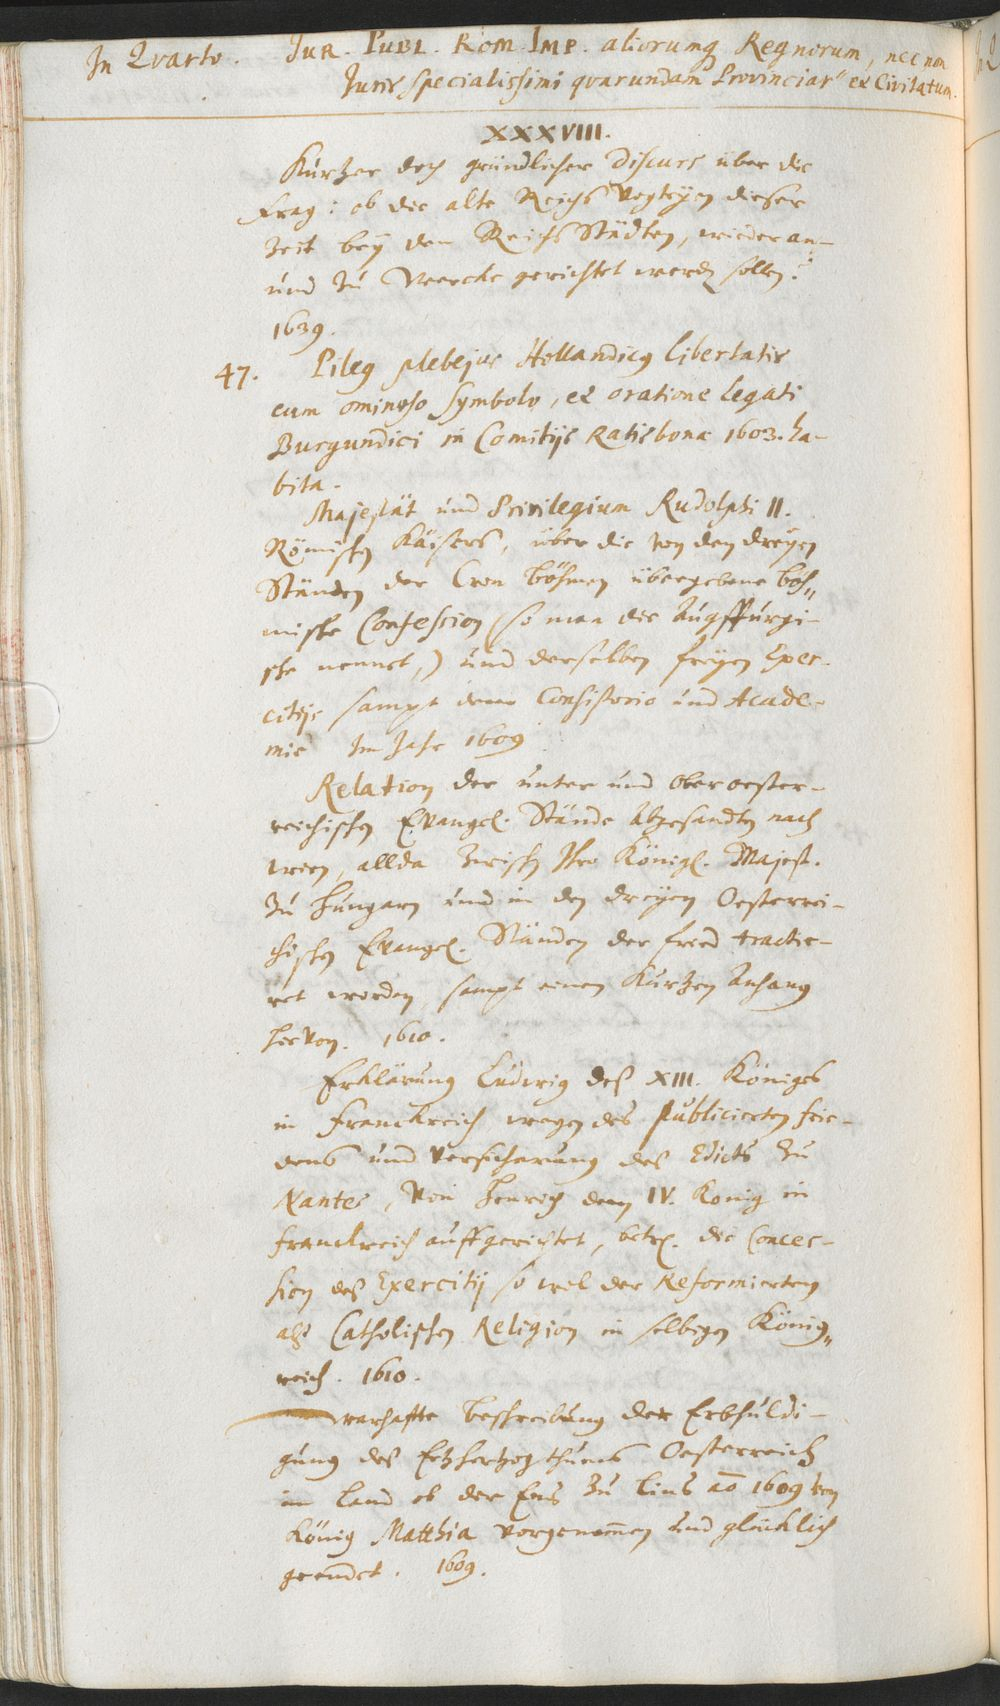 In Qvarto. JUR. PUBL. ROM. IMP. aliorumq Regnorum, nec non
Juris specialissimi qvarundam Provinciar" et Civitatum.
XXXVIII.
Kurtzer doch gründlicher Discurs über die
Frag: ob die alte Reichs Vogteyen dieser
Zeit bey den Reichs Städten, wieder an-
und zu Wercke gerichtet werdn sollen?
1639.
47. Pileg plebejus Hollandicg libertatis
cum ominoso symbolo, et oratione Legati
Burgundici in Comitijs Ratisbonæ 1603. ha-
bita.
Majestät und Privilegium Rudolphi II.
Römischn Käisers, über die von den dreyen
Ständen der Cron Böhmen übergebene böh„
mische Confession (so man die Augspurgi-
sche nennet,) und derselben freyen Exer-
citijs sampt dem Consistorio und Acade-
mie Im Jahr 1609
Relation der unter und Ober oester-
reichischn Evangel. Stände Abgesandtn nach
wien, allda zwischn Ihro Königl. Majest.
zu Hungarn und in den dreyen Oesterrei-
chischn Evangel. Ständen der fried tractie-
ret worden, sampt einen Kurtzen Anhang
hiervon. 1610.
Erklärung Ludwig deß XIII. Königes
in Franckreich wegen des publicierten frie-
dens und Versicherung des Edicts zu
Nantes, von Henrich dem IV. König in
franckreich auffgerichtet, betr. die Conces-
sion deß Exercitij so wol der Reformierten
als Catholischen Religion in selbigen König„
reich. 1610.
warhaffte beschreibung der Erbhuldi-
gung des Ertzhertzogthums Oesterreich
im land ob der Ens zu Lins ao 1609 von
König Matthia vorgenomen und glücklich
geendet. 1609.